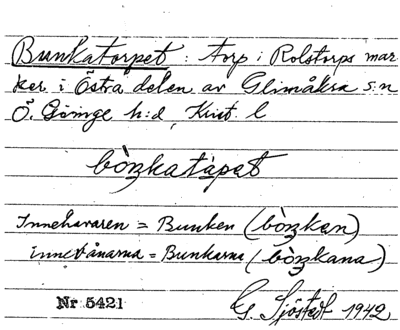 Bunkatorpet : torp i Rolstorps mar
ker i Östra delen av Glimåkra s:n
Ö. Göinge h:d, Krist. l
bòŋkatàpat
Innehavaren = Bunken (bòŋkan)
invånarna = Bunkarna (bòŋkana)
Nr 5421
G. Sjöstedt 1942